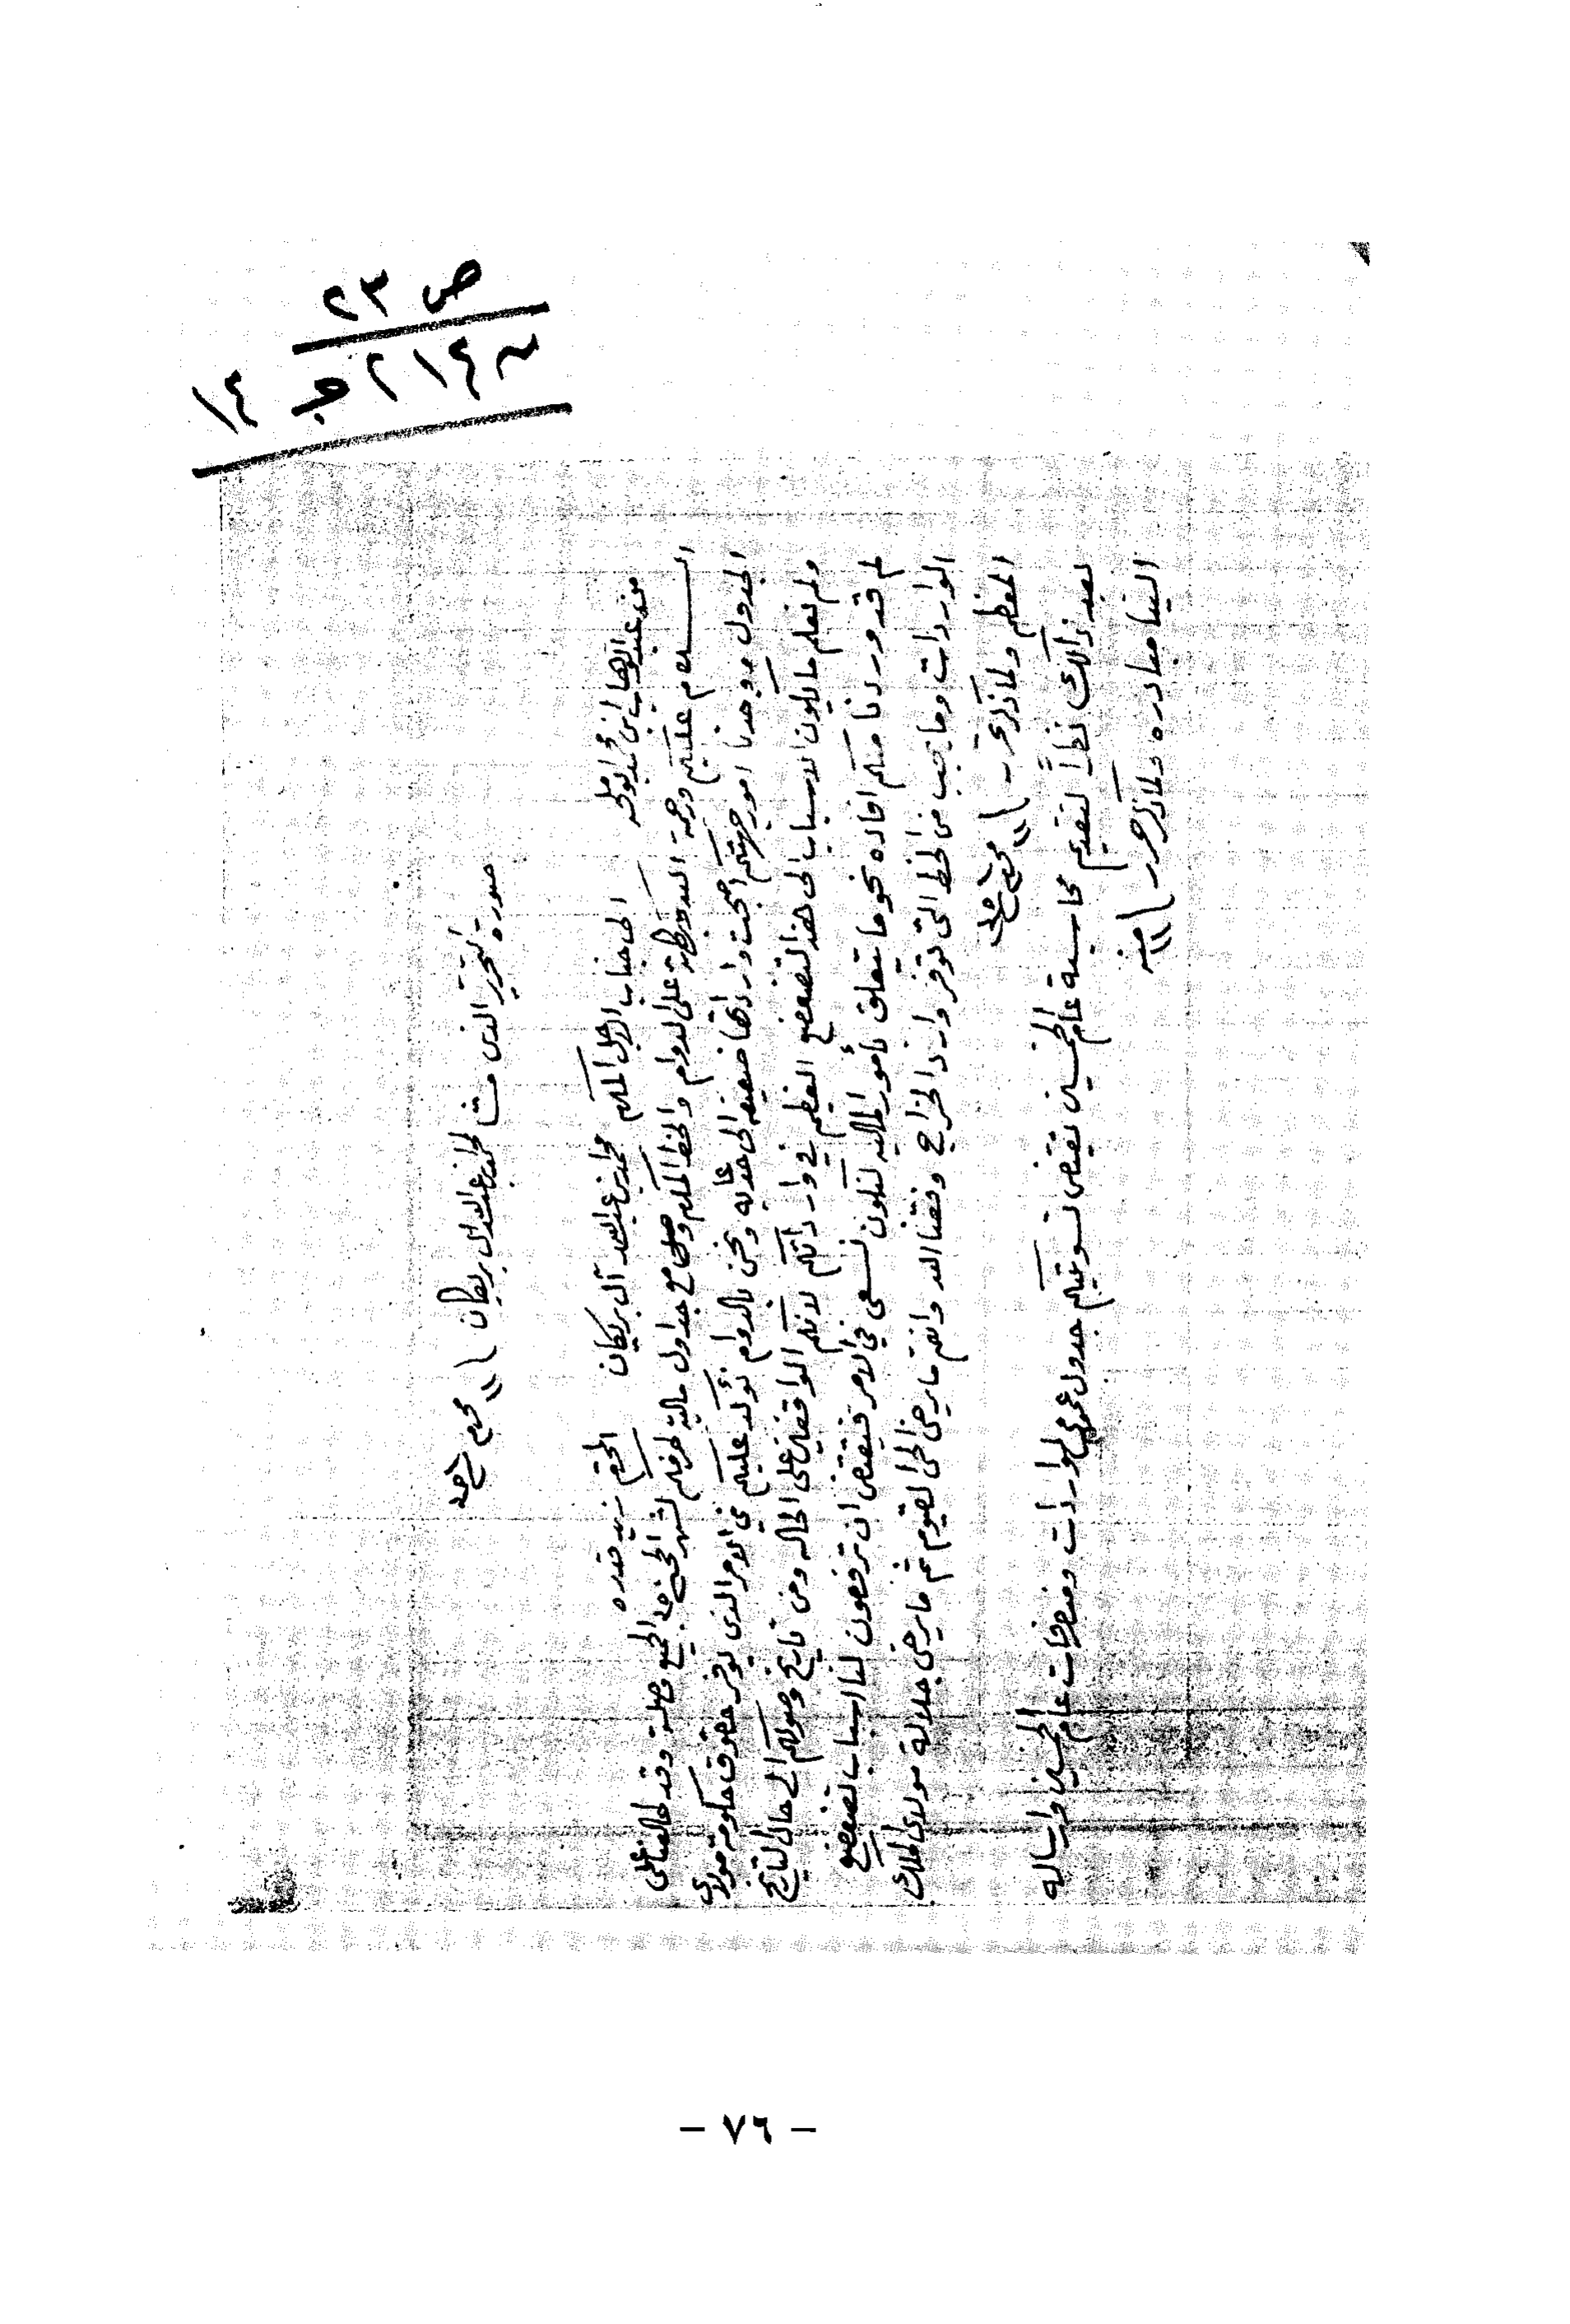 ص ٢٣
٢١٤ ج ١٤
صورة التحرير الذي منا لمحمد بن عبدالله آل بريكان ١١ محرم
من عبدالوهاب ابن محمد ابو ملحه الى جناب الاجل المكرم محمد بن عبدالله آل بريكان المحترم زيد قدره
السلام عليكم ورحمة الله وبركاته على الدوام والخط المكرم وصل مع جداول مالية طرفكم لشهر الجميع وصلت وقد طالعنا على
الجدول ووجدنا امور جهتكم اصبحت وارداتها ضعيفه الى غايه ونحن بالدوام نؤكد عليكم في الامر الذي يوفر حقوق حكومة مولاي
ولم نعلم ما يكون الاسباب الى هذا التضعضع العظيم في وارداتكم لانكم الواقفين على الحاله ومن تاريخ وصولكم الى حال التاريخ
لم قد وردنا منكم افاده نحو ما يتعلق بأمور الماليه لنكون نسعى في الامر فيقتضى ان ترفعون لنا اسباب تضعضع
الواردات وما يجب من الخط التي توفر وارد الخراج وفقنا الله وانتم ما يرضى الحي القيوم ثم ما يرضى جلالة مولاي الملك
المعظم ولماذكر تحرر ١١ محرم
بعد ذالك نظراً لتقديم محاسبة عام الخمسين يقتضى تسوقيكم جدول عمومي لواردات ومنصرفات عام الخمسين وارساله
الينا مبادره ولماذكر حرر ١١ منه
- ٧٦ -